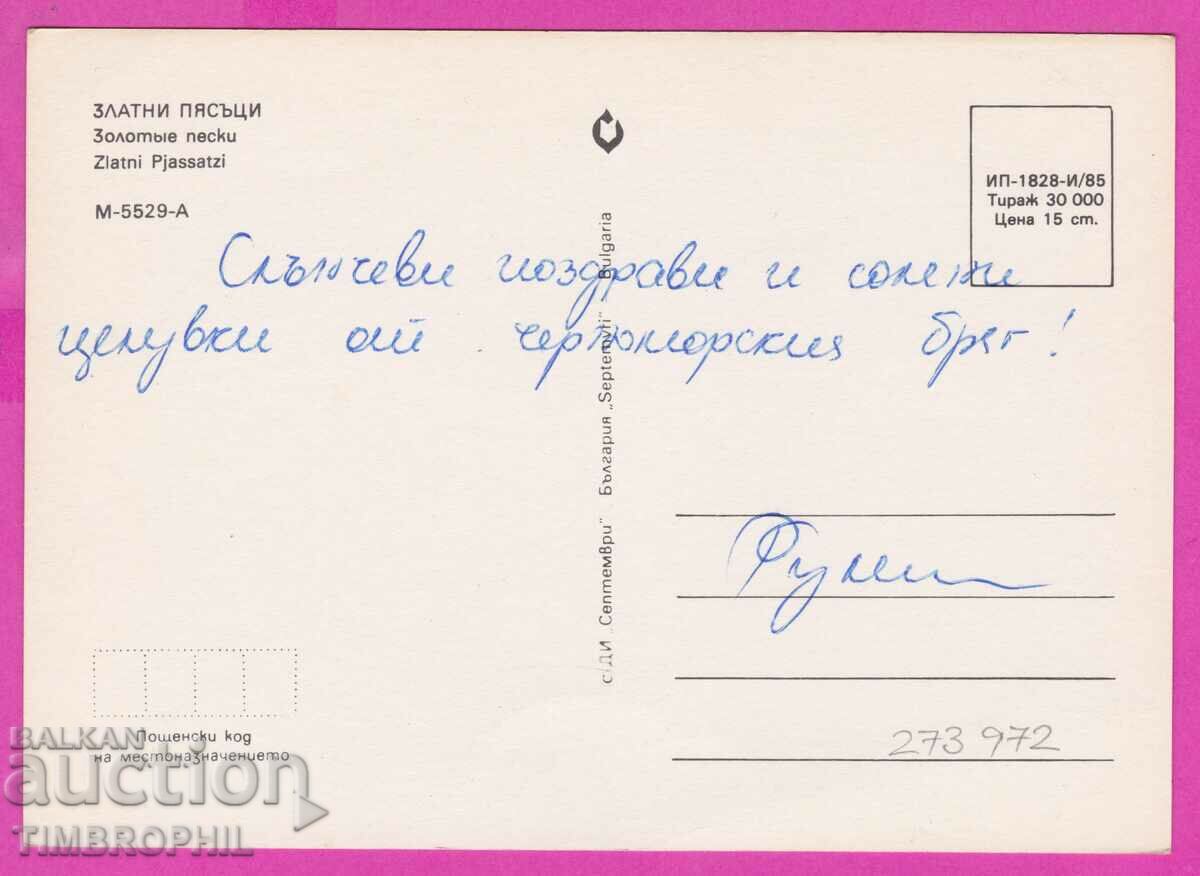 ЗЛАТНИ ПЯСЪЦИ
Золотые пески
Zlatni Pjassatzi
М-5529-А
ИП-1828-И/85
Тираж 30 000
Цена 15 ст.
Слънчеви поздрави и солени
целувки от черноморския бряг!
с/ДИ „Септември" България „Septemvri" Bulgaria
273 972
Пощенски код
на местоназначението
BALKAN
auction
TIMBROPHIL